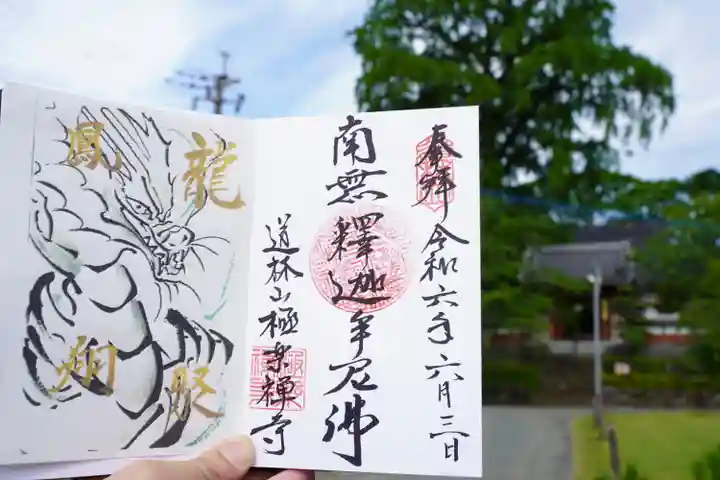 奉拝 令和六年六月三日
南無釋迦牟尼佛
道林山極楽禅寺
龍
鳳